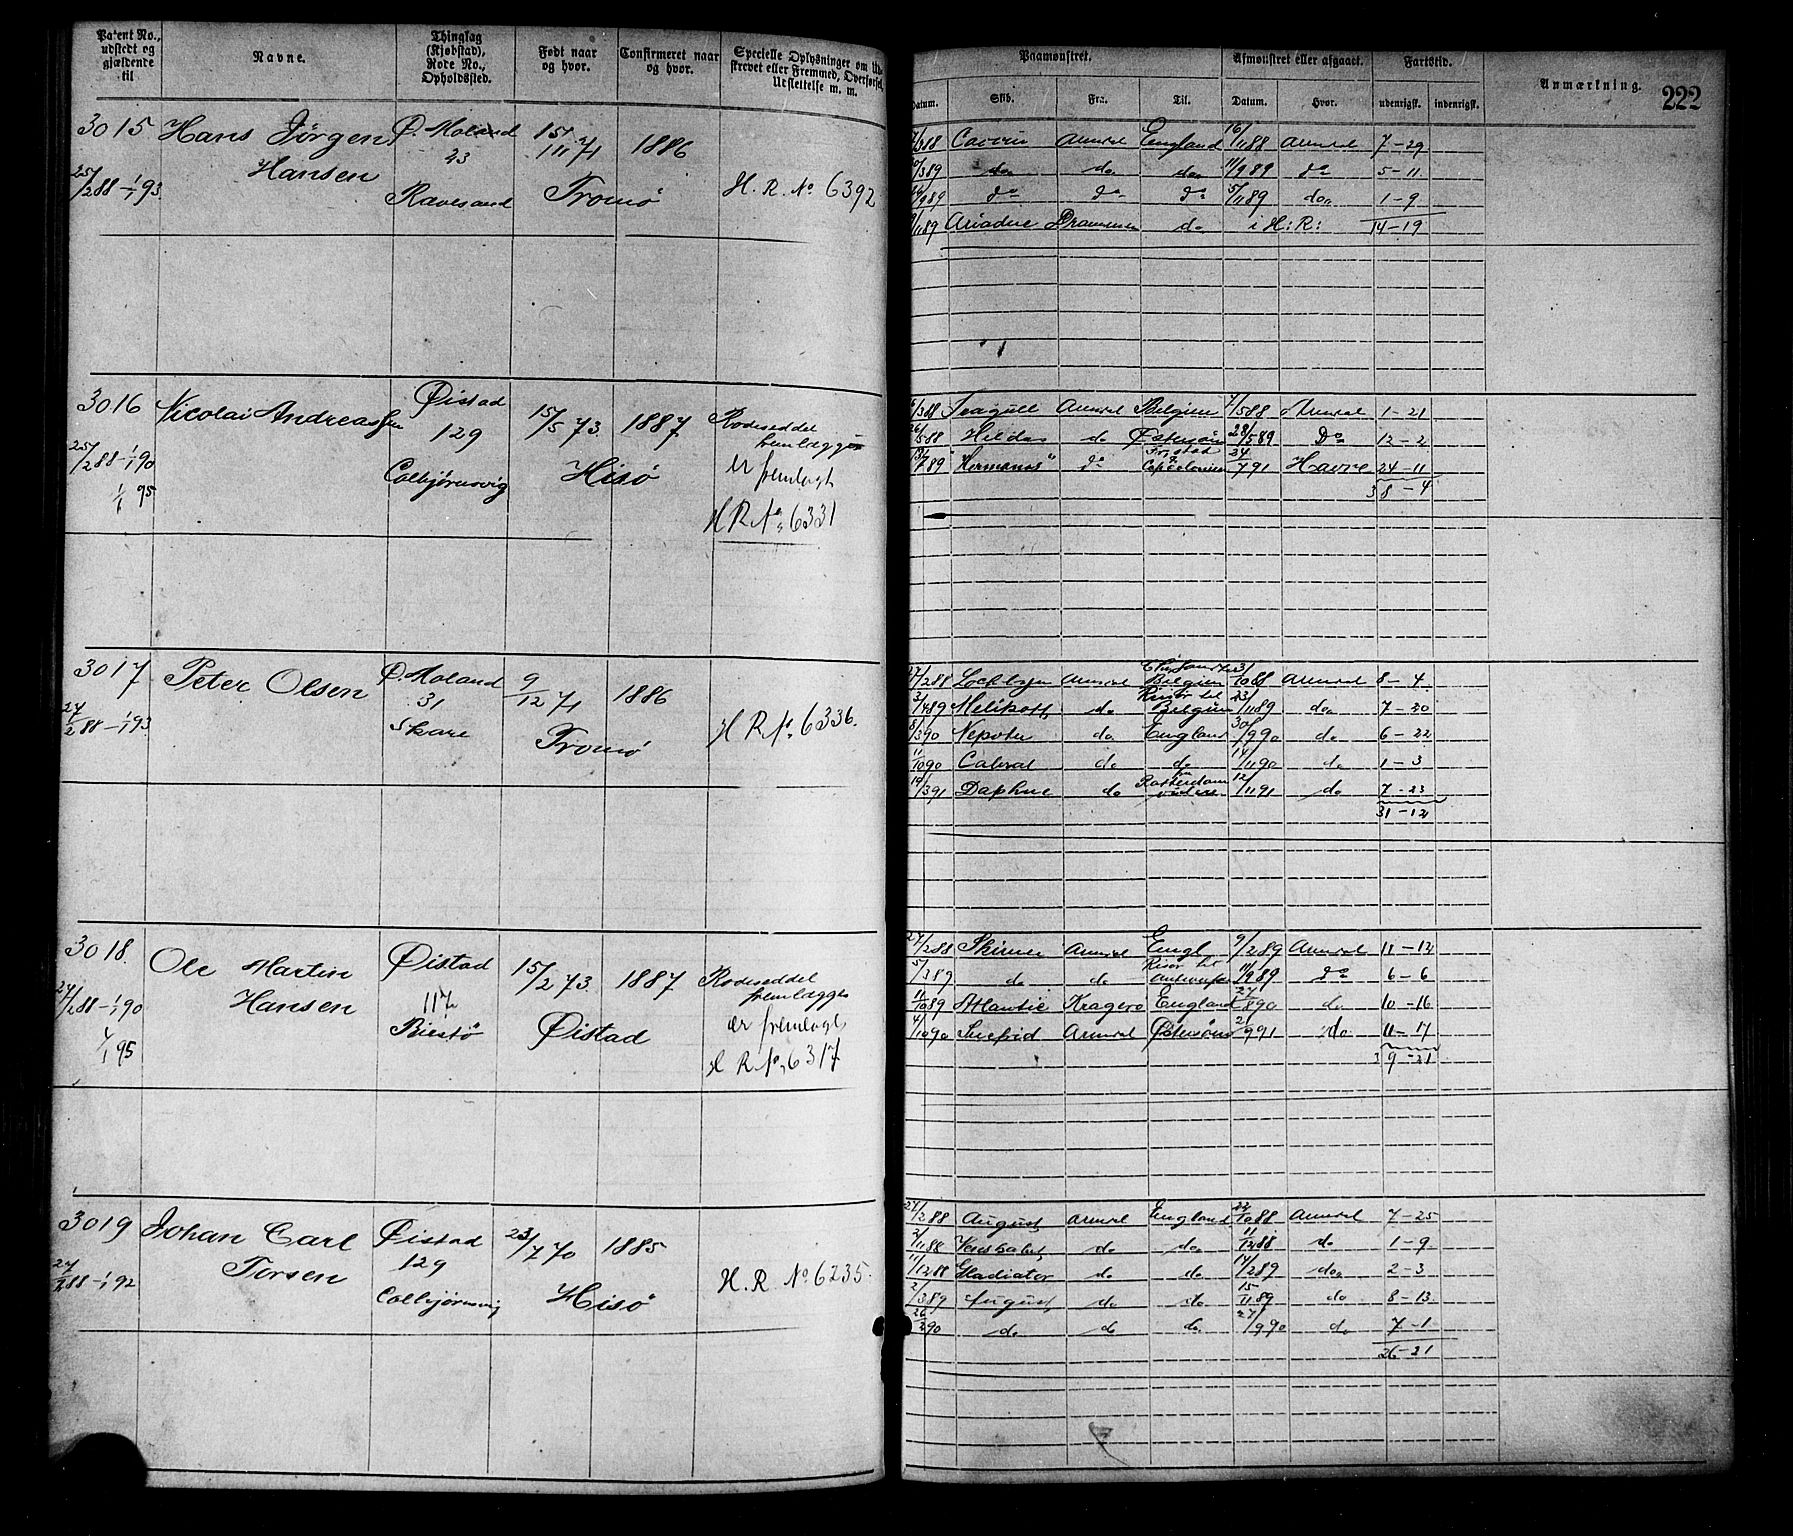 Patent No., udstedt og gjældende til
Navne.
Thinglag (Kjøbstad), Rode No., Opholdssted.
Født naar og hvor.
Confirmeret naar og hvor.
Specielle Oplysninger om
skrevet eller Fremmed, Overførsel, Udslettelse m. m.
3015 Hans Jørgen Hansen
25/2 88 - 1/1 93
Ø. Moland
23
Ravesand
15/11 71
Tromø
1886
H. R. No 6392
3016 Nicolai Andreassen
25/2 88 - 1/1 90
1/1 95
Øistad
129
Colbjørnsvig
15/5 73.
Hisø
1887.
Rodeseddel
fremlægges
er
fremlagt
H R No 6331
3017 Peter Olsen
27/2 88 - 1/1 93
Ø. Moland
31
Skare
9/12 71
Tromø
1886
H R No 6336.
3018. Ole Martin Hansen
27/2 88 - 1/1 90
1/1 95
Øistad
117
Biestø
15/2 73.
Øistad
1887
Rodeseddel
fremlægges
er fremlagt
H R No 6317
3019 Johan Carl Torsen
27/2 88 - 1/1 92
Øistad
129
Colbjørnsvig
23/7 70
Hisø
1885
H. R. No 6235.
Paamønstret.
Afmønstret eller afgaaet.
Fartstid.
Anmærkning.
222
Datum. Skib. Fra. Til. Datum. Hvor. udenrigsk. indenrigsk.
Arendal England 16/11 88 Arendal 7 - 29
do do 11/9 89 do 5 - 11
do do do 5/11 89 do 1 - 9
Ariadne Drammen do i H: R: 14 - 19
Seagull Arendal Belgien 1/5 88 Arendal 1 - 21
26/5 88 Hilda do Østersøen 28/5 89 Do 12 - 2
"Hermanos" do 24/7 91 Havre 24 - 11
38 - 4
27/2 88 Arendal Belgien 31/10 88 Arendal 8 - 4
Risør til
do Belgien 23/11 89 do 7 - 20
8/3 90 Nepotu do England 30/9 90 do 6 - 22
11/10 90 Cabral do do 14/11 90 do 1 - 3
19/3 91 Daphne do Rotterdam 12/11 91 do 7 - 23
31 - 12
27/2 88 Skirner Arendal Engl 9/2 89 Arendal 11 - 12
Risør til
5/3 89 do do 11/9 89 do 6 - 6
11/10 89 Atlantic Kragerø England do 10 - 16
4/10 90 Arendal Østersøen 21/9 91 do 11 - 17
39 - 21
27/2 88 August Arendal England 22/10 88 Arendal 7 - 25
2/11 88 do do 11/12 88 do 1 - 9
11/12 88 Gladiator do do 14/2 89 do 2 - 3
2/3 89 August do do 15/11 89 do 8 - 13
26/2 90 do do do 27/9 90 do 7 - 1
26 - 21